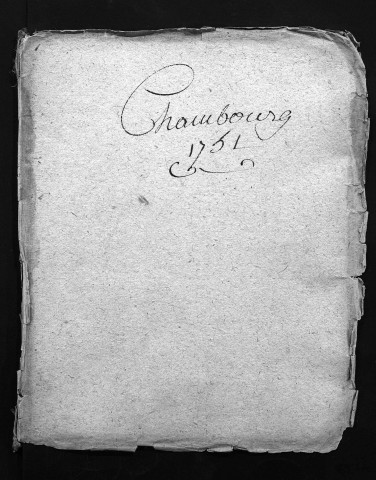 Chambourg
1751